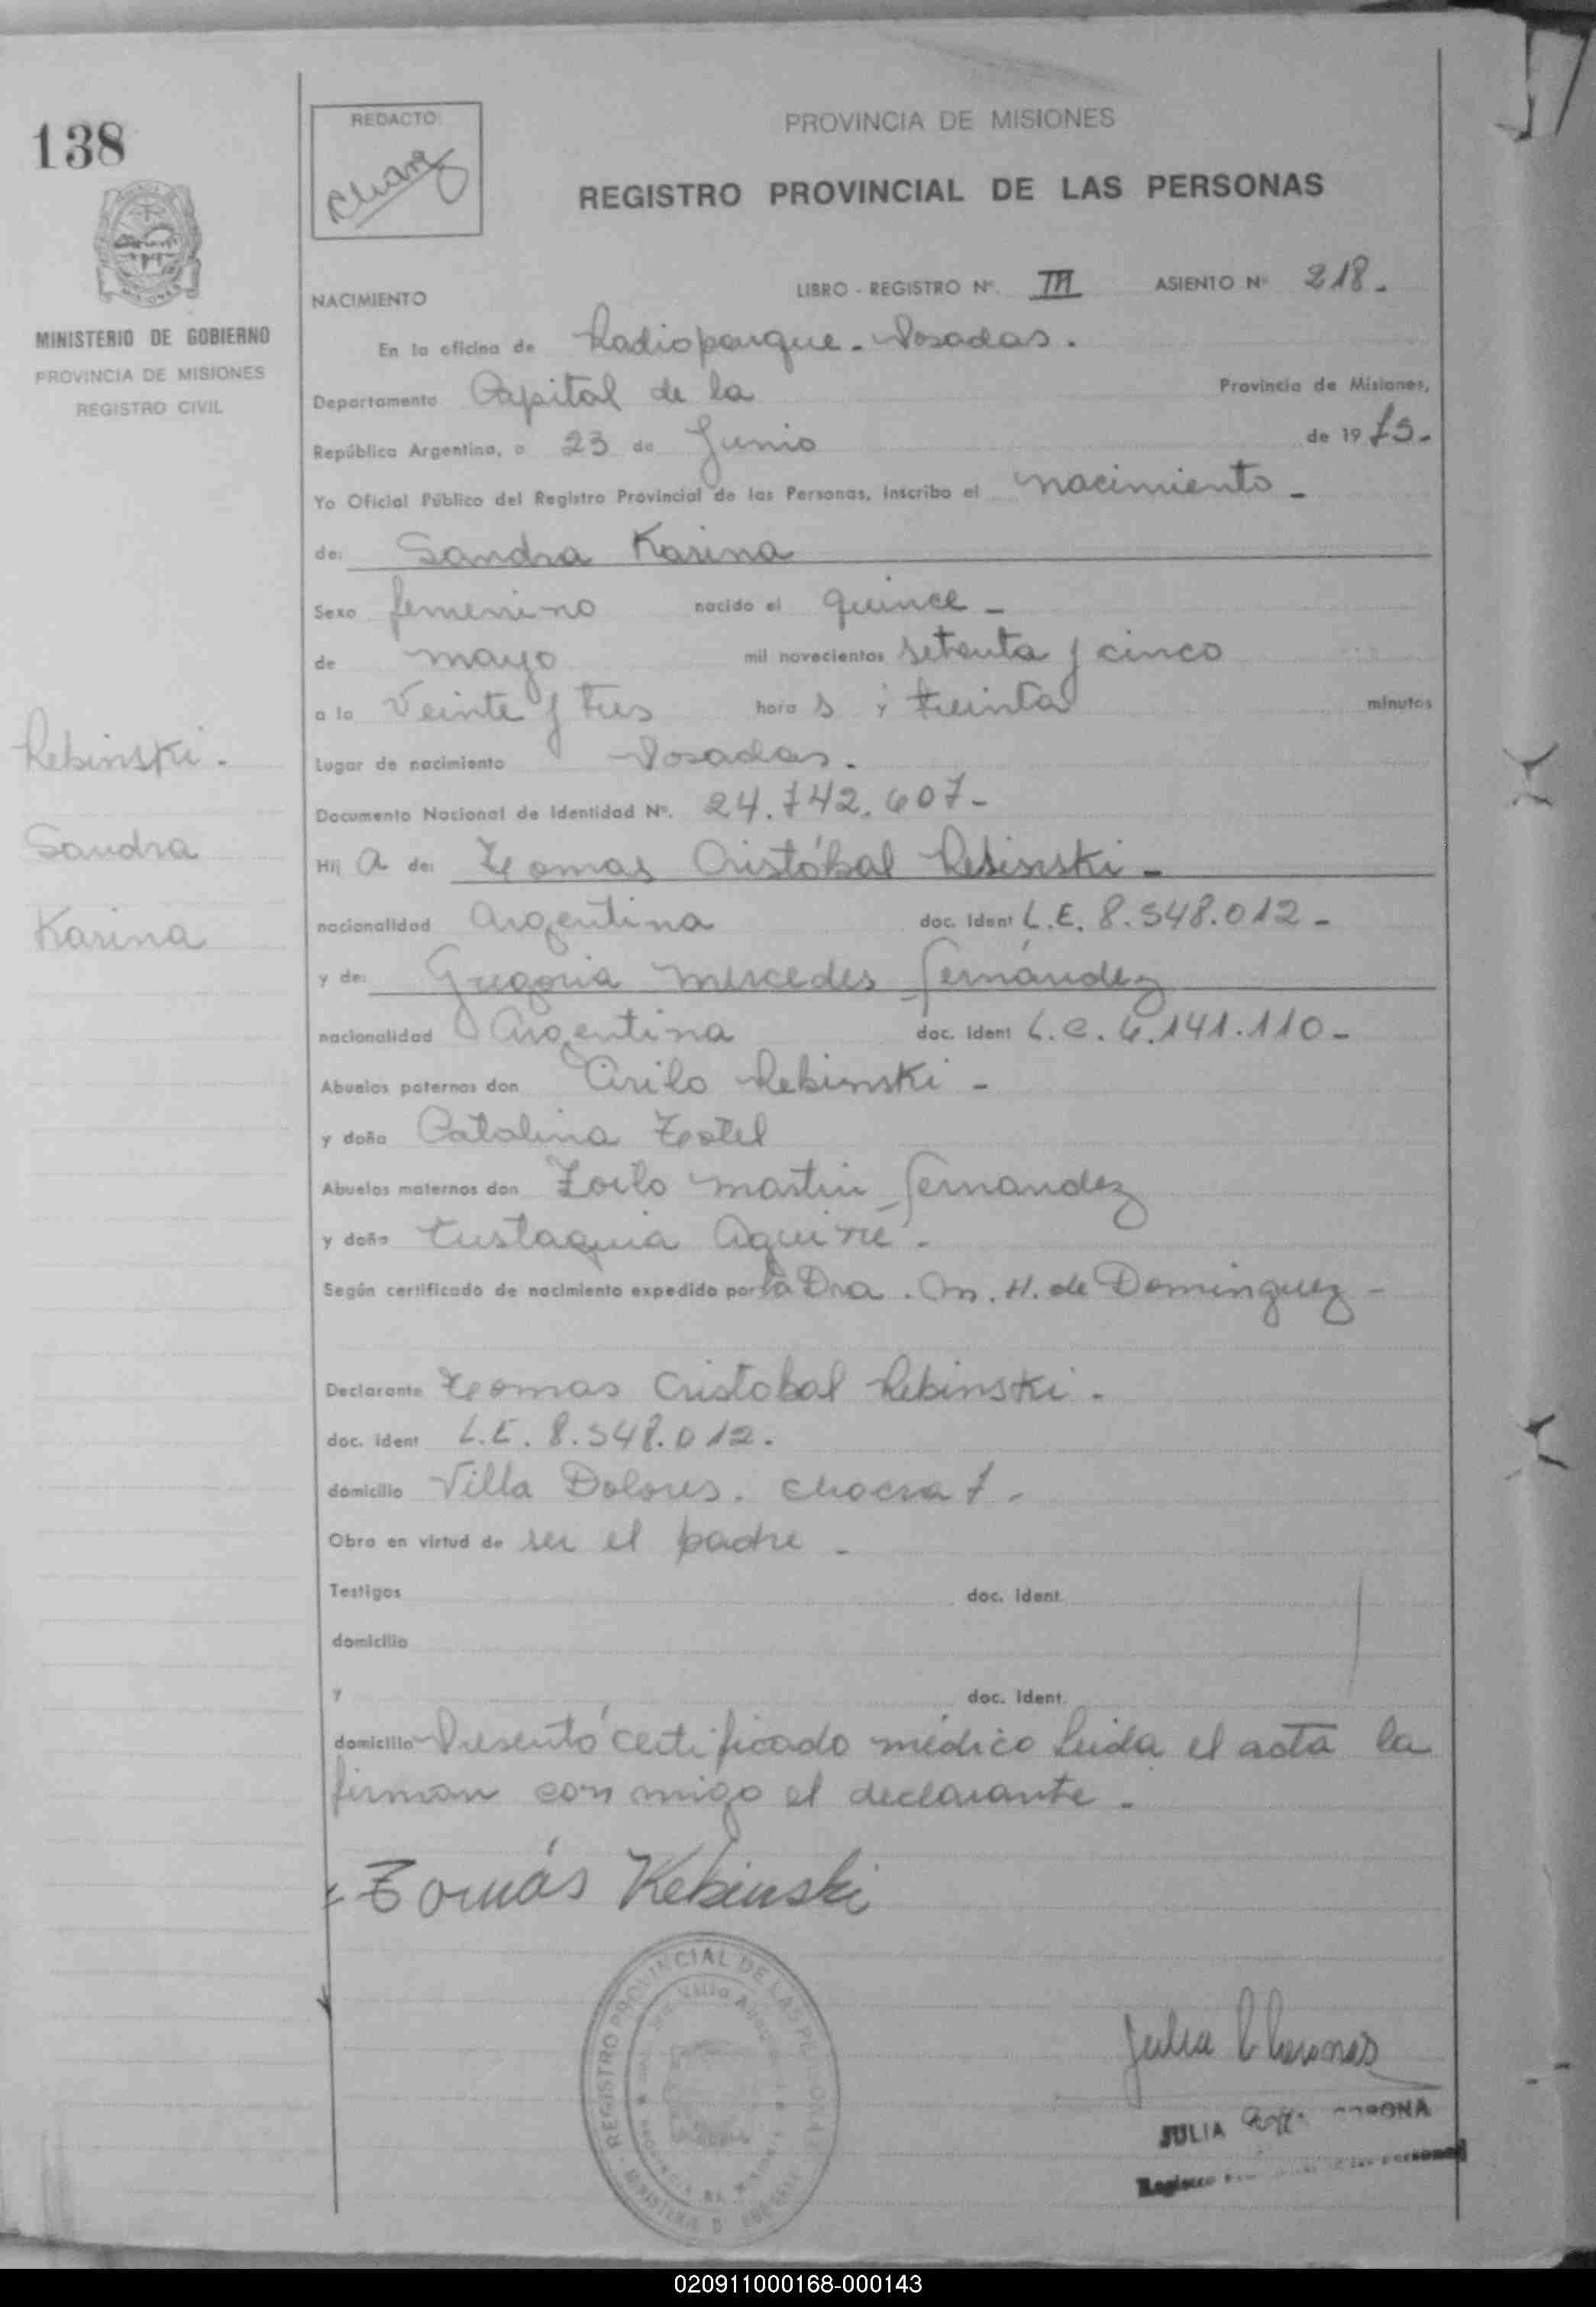 138
REDACTO:
PROVINCIA DE MISIONES
REGISTRO PROVINCIAL DE LAS PERSONAS
MINISTERIO DE GOBIERNO
PROVINCIA DE MISIONES
REGISTRO CIVIL
NACIMIENTO
LIBRO - REGISTRO Nº. III ASIENTO Nº 218.
En la oficina de Radioparque - Posadas.
Departamento Capital de la Provincia de Misiones,
República Argentina, a 23 de Junio de 1975.
Yo Oficial Público del Registro Provincial de las Personas, inscribo el nacimiento -
de: Sandra Karina
Sexo femenino nacido el quince -
de mayo mil novecientos setenta y cinco
a la veinte y tres hora s y treinta minutos
Lugar de nacimiento Posadas.
Documento Nacional de Identidad Nº. 24.742.607-
Hij a de: Tomas Cristóbal Rebinski -
nacionalidad Argentina doc. Ident L.E. 8.548.012 -
y de: Gregoria Mercedes Fernández
nacionalidad Argentina doc. Ident L.C. 6.141.110 -
Abuelos paternos don Cirilo Rebinski -
y doña Catalina
Abuelos maternos don Zoilo Martin Fernandez
y doña Eustaquia Aguirre -
Según certificado de nacimiento expedido por la Dra. M. H. de Dominguez -
Declarante Tomas Cristobal Rebinski -
doc. ident L.E. 8.548.012.
domicilio Villa Dolores. chacra 7.
Obra en virtud de ser el padre -
Testigos doc. ident.
domicilio
y doc. Ident.
domicilio Presentó certificado médico leida el acta la
firman con migo el declarante -
Rebinski -
Sandra
Karina
Tomás Rebinski
REGISTRO PROVINCIAL DE LAS PERSONAS
Julia
JULIA CORONA
020911000168-000143